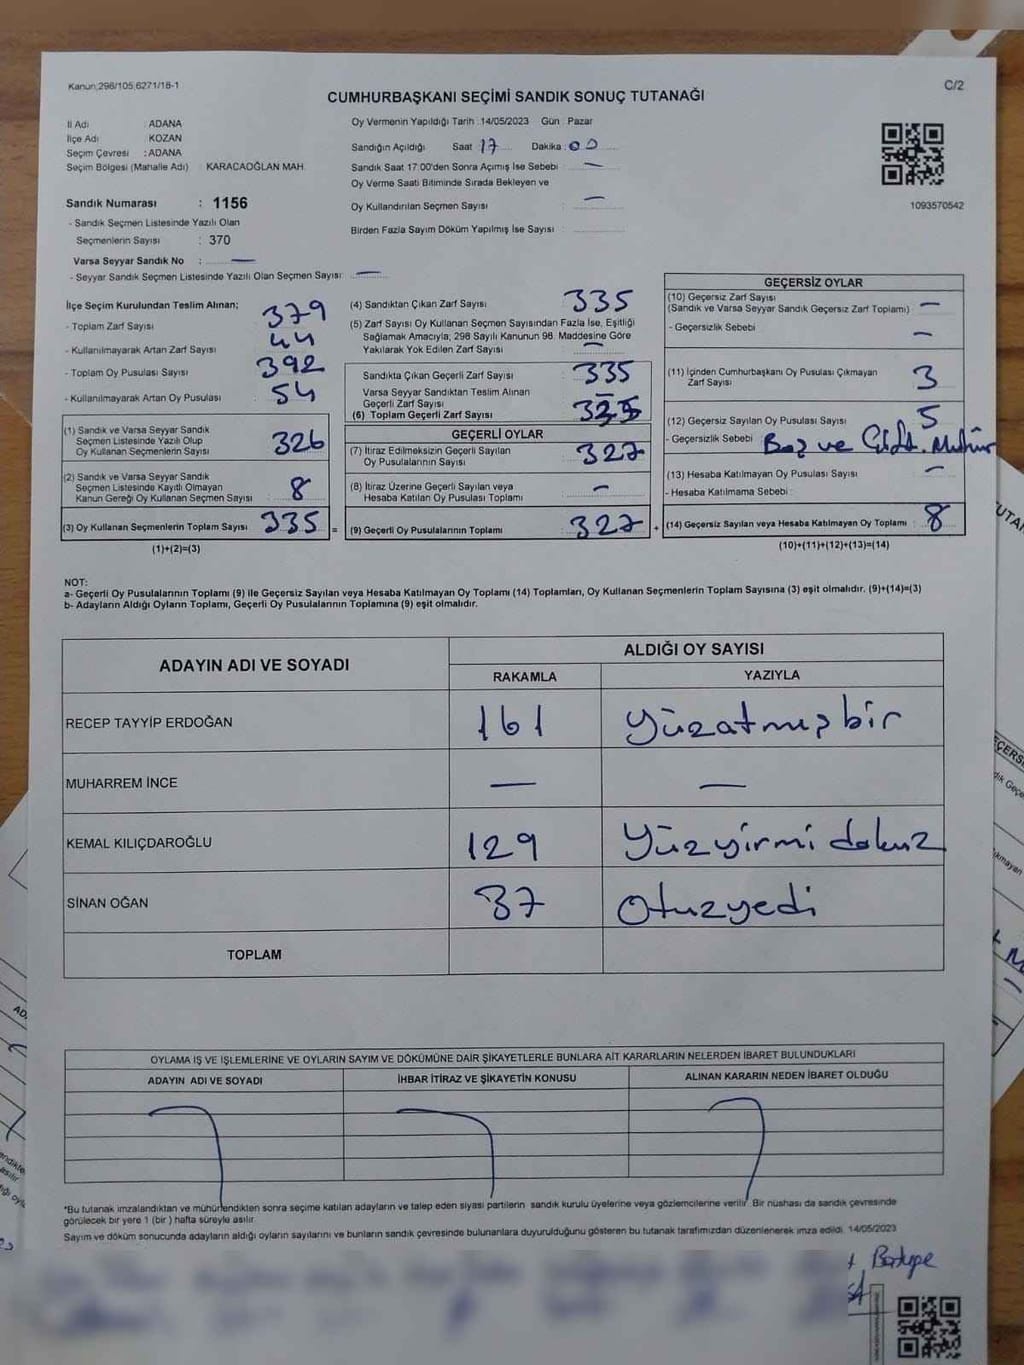 Kanun;298/105,6271/18-1
C/2
CUMHURBAŞKANI SEÇİMİ SANDIK SONUÇ TUTANAĞI
İl Adı : ADANA
İlçe Adı : KOZAN
Seçim Çevresi : ADANA
Seçim Bölgesi (Mahalle Adı) : KARACAOĞLAN MAH.
Sandık Numarası : 1156
- Sandık Seçmen Listesinde Yazılı Olan
Seçmenlerin Sayısı : 370
Varsa Seyyar Sandık No : —
- Seyyar Sandık Seçmen Listesinde Yazılı Olan Seçmen Sayısı: —
Oy Vermenin Yapıldığı Tarih :14/05/2023 Gün : Pazar
Sandığın Açıldığı Saat 17 Dakika : 00
Sandık Saat 17:00'den Sonra Açımış İse Sebebi : —
Oy Verme Saati Bitiminde Sırada Bekleyen ve
Oy Kullandırılan Seçmen Sayısı : —
Birden Fazla Sayım Döküm Yapılmış İse Sayısı :
1093570542
İlçe Seçim Kurulundan Teslim Alınan;
- Toplam Zarf Sayısı : 379
- Kullanılmayarak Artan Zarf Sayısı : 44
- Toplam Oy Pusulası Sayısı : 392
- Kullanılmayarak Artan Oy Pusulası : 54
(1) Sandık ve Varsa Seyyar Sandık
Seçmen Listesinde Yazılı Olup
Oy Kullanan Seçmenlerin Sayısı : 326
(2) Sandık ve Varsa Seyyar Sandık
Seçmen Listesinde Kayıtlı Olmayan
Kanun Gereği Oy Kullanan Seçmen Sayısı : 8
(3) Oy Kullanan Seçmenlerin Toplam Sayısı : 335 =
(1)+(2)=(3)
(4) Sandıktan Çıkan Zarf Sayısı : 335
(5) Zarf Sayısı Oy Kullanan Seçmen Sayısından Fazla İse, Eşitliği
Sağlamak Amacıyla; 298 Sayılı Kanunun 98. Maddesine Göre
Yakılarak Yok Edilen Zarf Sayısı : —
Sandıkta Çıkan Geçerli Zarf Sayısı : 335
Varsa Seyyar Sandıktan Teslim Alınan
Geçerli Zarf Sayısı :
(6) Toplam Geçerli Zarf Sayısı : 335
GEÇERLİ OYLAR
(7) İtiraz Edilmeksizin Geçerli Sayılan
Oy Pusulalarının Sayısı : 327
(8) İtiraz Üzerine Geçerli Sayılan veya
Hesaba Katılan Oy Pusulası Toplamı : —
(9) Geçerli Oy Pusulalarının Toplamı : 327 +
GEÇERSİZ OYLAR
(10) Geçersiz Zarf Sayısı
(Sandık ve Varsa Seyyar Sandık Geçersiz Zarf Toplamı) : —
- Geçersizlik Sebebi : —
(11) İçinden Cumhurbaşkanı Oy Pusulası Çıkmayan
Zarf Sayısı : 3
(12) Geçersiz Sayılan Oy Pusulası Sayısı : 5
- Geçersizlik Sebebi : Boş ve Çift Mühür
(13) Hesaba Katılmayan Oy Pusulası Sayısı : —
- Hesaba Katılmama Sebebi :
(14) Geçersiz Sayılan veya Hesaba Katılmayan Oy Toplamı : 8
(10)+(11)+(12)+(13)=(14)
NOT:
a- Geçerli Oy Pusulalarının Toplamı (9) ile Geçersiz Sayılan veya Hesaba Katılmayan Oy Toplamı (14) Toplamları, Oy Kullanan Seçmenlerin Toplam Sayısına (3) eşit olmalıdır. (9)+(14)=(3)
b- Adayların Aldığı Oyların Toplamı, Geçerli Oy Pusulalarının Toplamına (9) eşit olmalıdır.
ADAYIN ADI VE SOYADI
ALDIĞI OY SAYISI
RAKAMLA YAZIYLA
RECEP TAYYİP ERDOĞAN 161 Yüzatmışbir
MUHARREM İNCE — —
KEMAL KILIÇDAROĞLU 129 Yüzyirmi dokuz
SİNAN OĞAN 37 Otuzyedi
TOPLAM
OYLAMA İŞ VE İŞLEMLERİNE VE OYLARIN SAYIM VE DÖKÜMÜNE DAİR ŞİKAYETLERLE BUNLARA AİT KARARLARIN NELERDEN İBARET BULUNDUKLARI
ADAYIN ADI VE SOYADI İHBAR İTİRAZ VE ŞİKAYETİN KONUSU ALINAN KARARIN NEDEN İBARET OLDUĞU
*Bu tutanak imzalandıktan ve mühürlendikten sonra seçime katılan adayların ve talep eden siyasi partilerin sandık kurulu üyelerine veya gözlemcilerine verilir. Bir nüshası da sandık çevresinde
görülecek bir yere 1 (bir ) hafta süreyle asılır.
Sayım ve döküm sonucunda adayların aldığı oyların sayılarını ve bunların sandık çevresinde bulunanlara duyurulduğunu gösteren bu tutanak tarafımızdan düzenlenerek imza edildi. 14/05/2023